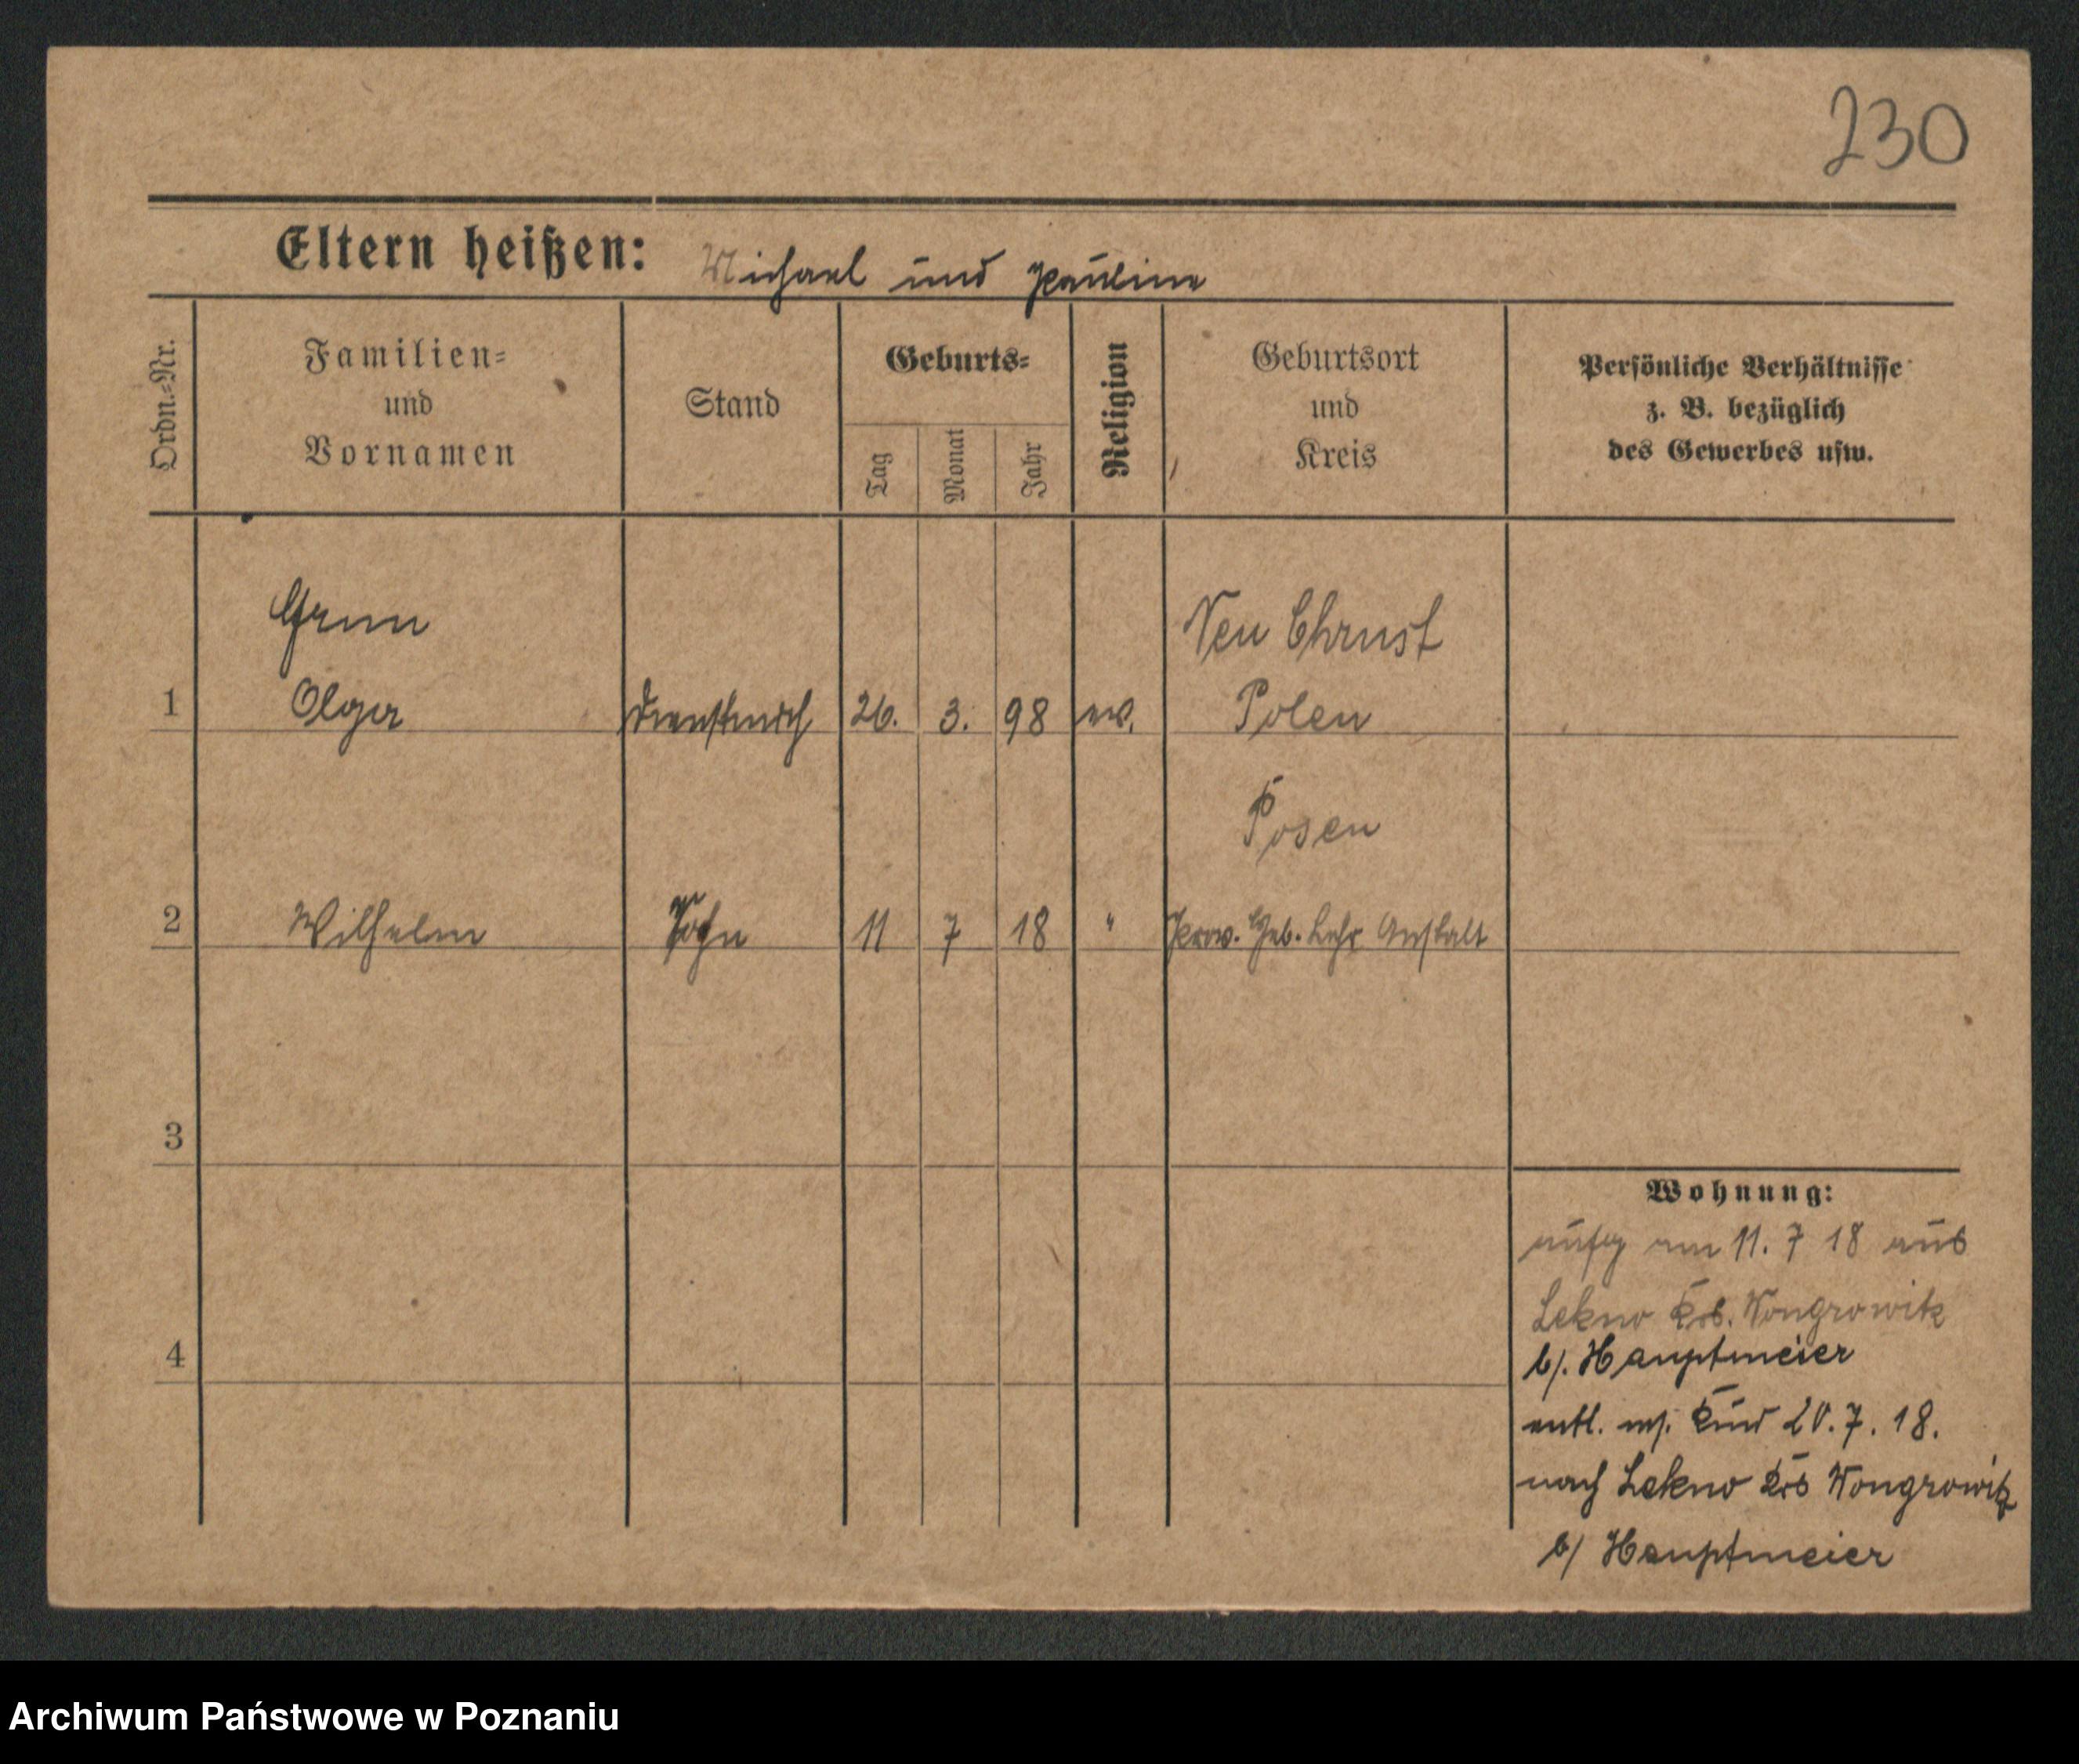 230
Eltern heißen: Michael und Pauline
Ordn.-Nr.
Familien-
und
Vornamen
Stand
Geburts-
Tag
Monat
Jahr
Religion
Geburtsort
und
Kreis
Persönliche Verhältnisse
z. B. bezüglich
des Gewerbes usw.
Neu Chrust
1 Olga 26. 3. 98 ev. Polen
Posen
2 Wilhelm Sohn 11 7 18 " Prov. Heb. Lehr Anstalt
3
4
Wohnung:
am 11. 7 18 aus
Lekno Krs. Wongrowitz
b/. Hauptmeier
entl. Kind 20. 7. 18.
nach Lekno Krs Wongrowitz
b/ Hauptmeier
Archiwum Państwowe w Poznaniu